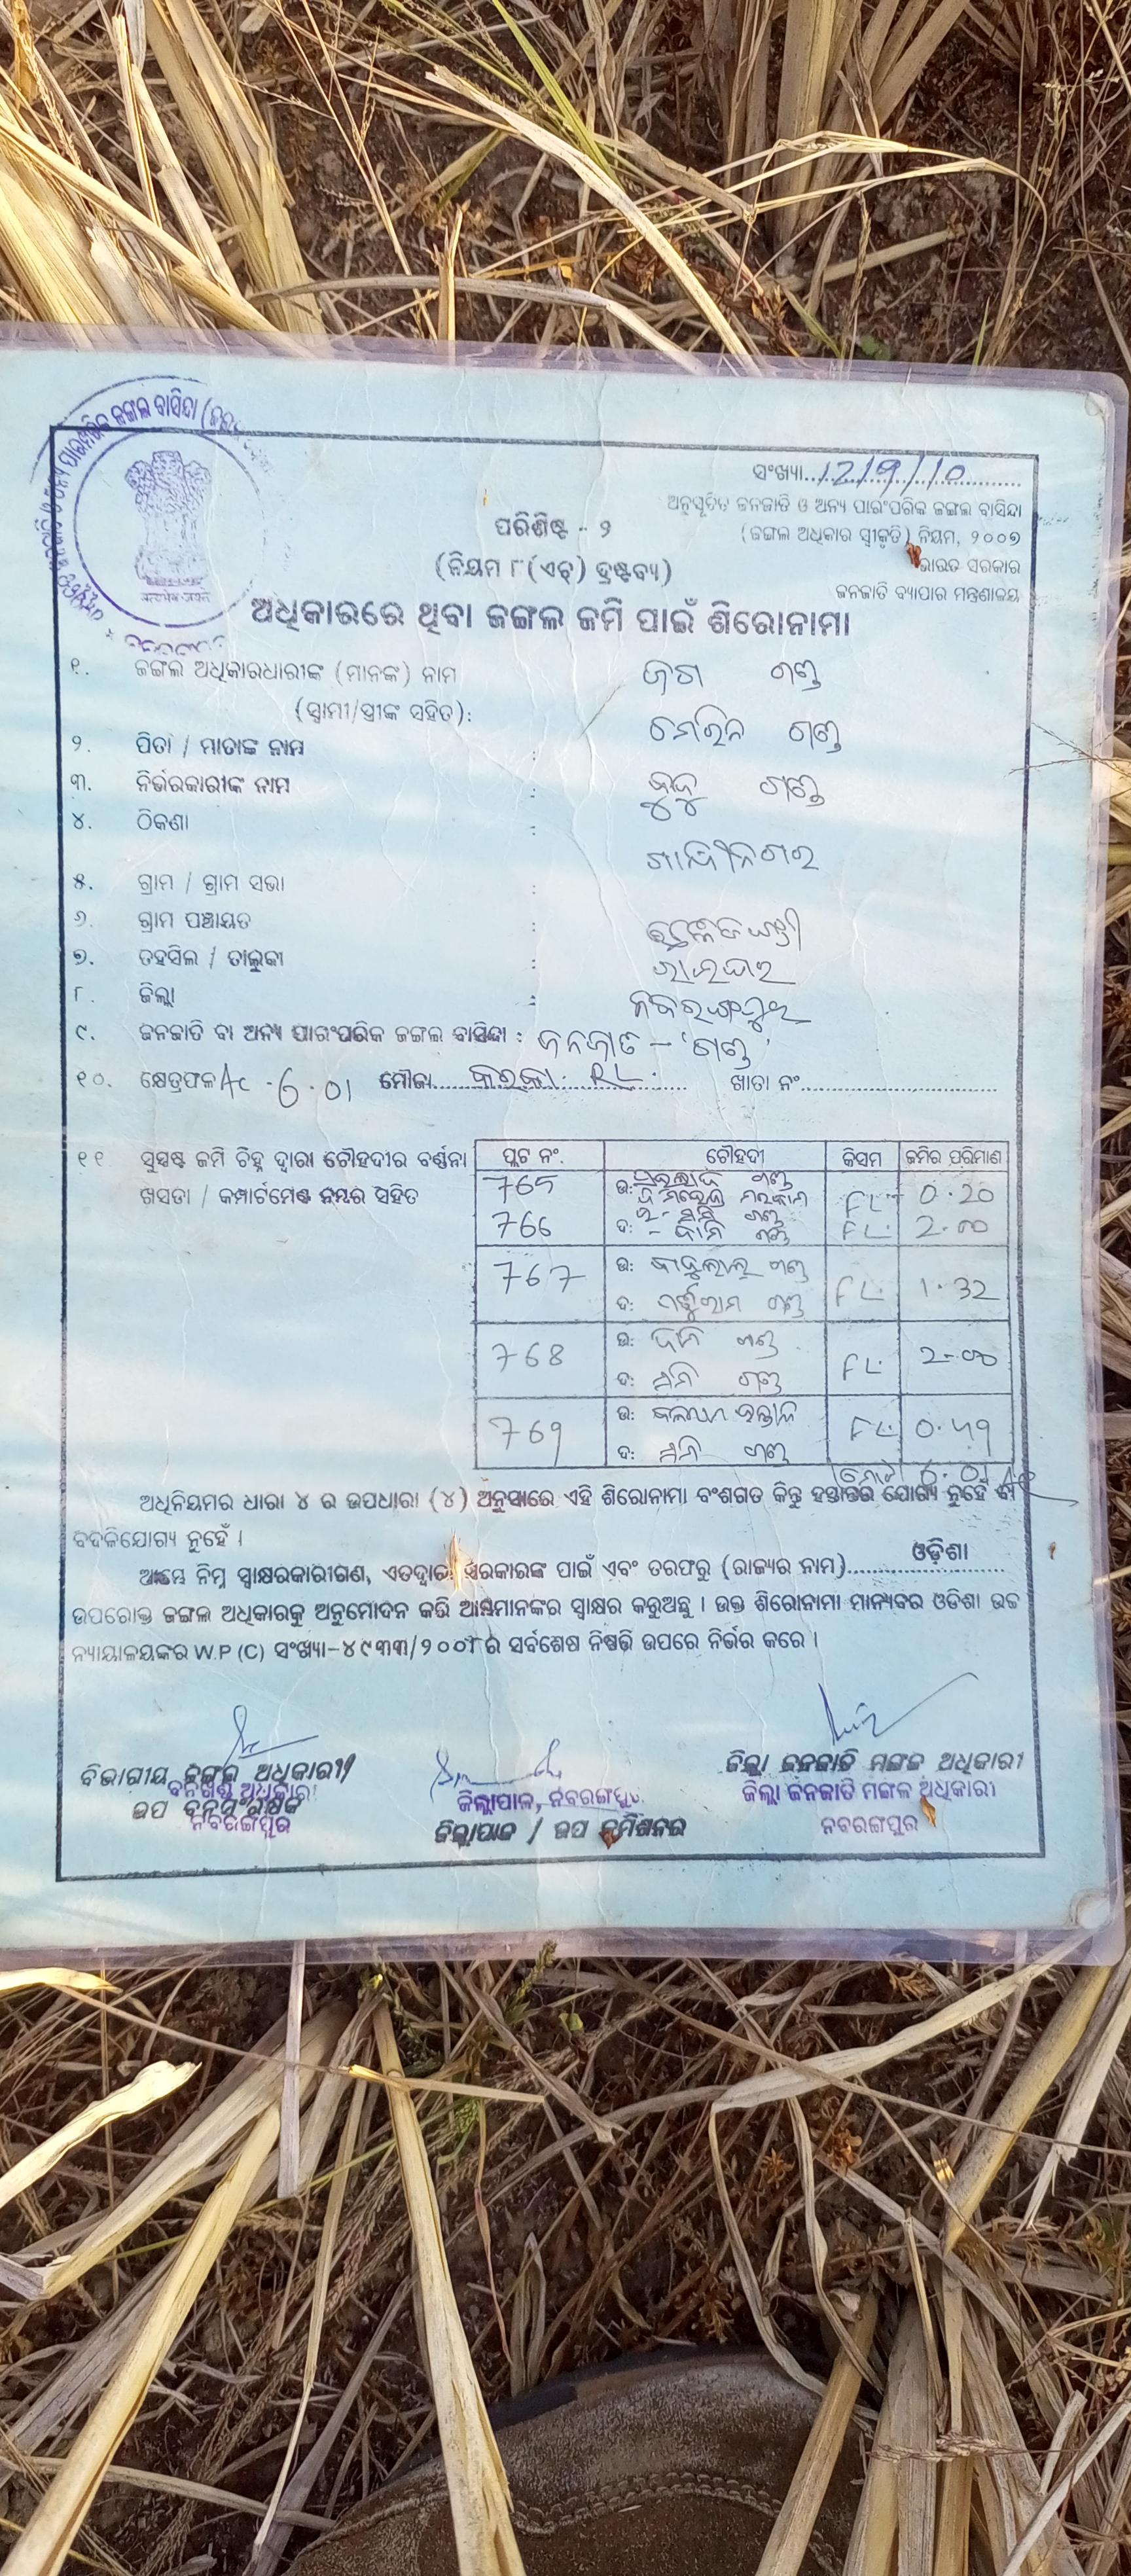 ସଂଖ୍ୟା...1219/10
ଅନୁସୂଚିତ ଜନଜାତି ଓ ଅନ୍ୟ ପାରଂପରିକ ଜଙ୍ଗଲ ବାସିନ୍ଦା
(ଜଙ୍ଗଲ ଅଧିକାର ସ୍ୱୀକୃତି) ନିୟମ, ୨୦୦୭
ଭାରତ ସରକାର
ଜନଜାତି ବ୍ୟାପାର ମନ୍ତ୍ରଣାଳୟ
ପରିଶିଷ୍ଟ - ୨
(ନିୟମ ୮(ଏଚ୍) ଦ୍ରଷ୍ଟବ୍ୟ)
ଅଧିକାରରେ ଥିବା ଜଙ୍ଗଲ ଜମି ପାଇଁ ଶିରୋନାମା
୧. ଜଙ୍ଗଲ ଅଧିକାରଧାରୀଙ୍କ (ମାନଙ୍କ) ନାମ ଜଗ ଗଣ୍ଡ
(ସ୍ୱାମୀ/ସ୍ତ୍ରୀଙ୍କ ସହିତ):
୨. ପିତା / ମାତାଙ୍କ ନାମ : ଗଣ୍ଡ
୩. ନିର୍ଭରକାରୀଙ୍କ ନାମ : ଗଣ୍ଡ
୪. ଠିକଣା :
ଗାନ୍ଧୀନଗର
୫. ଗ୍ରାମ / ଗ୍ରାମ ସଭା :
୬. ଗ୍ରାମ ପଞ୍ଚାୟତ :
୭. ତହସିଲ / ତାଲୁକା : ରାଇଘର
୮. ଜିଲ୍ଲା : ନବରଙ୍ଗପୁର
୯. ଜନଜାତି ବା ଅନ୍ୟ ପାରଂପରିକ ଜଙ୍ଗଲ ବାସିନ୍ଦା : ଜନଜାତି - 'ଗଣ୍ଡ'
୧୦. କ୍ଷେତ୍ରଫଳ Ac - 6.01 ମୌଜା... କରକା. RL. ... ଖାତା ନଂ...
୧୧ ସୁସ୍ପଷ୍ଟ ଜମି ଚିହ୍ନ ଦ୍ୱାରା ଚୌହଦୀର ବର୍ଣ୍ଣନା
ଖସଡା / କମ୍ପାର୍ଟମେଣ୍ଟ ନମ୍ବର ସହିତ
ପ୍ଲଟ ନଂ. ଚୌହଦୀ କିସମ ଜମିର ପରିମାଣ
765 ଉ: ଗଣ୍ଡ FL 0.20
766 ଦ: ଗଣ୍ଡ FL. 2.00
767 ଉ: ବାବୁଲାଲ ଗଣ୍ଡ FL. 1.32
ଦ: ଗଣ୍ଡ
768 ଉ: ଗଣ୍ଡ FL. 2.00
ଦ: ଗଣ୍ଡ
769 ଉ: FL. 0.49
ଦ: ଗଣ୍ଡ
6.01 Ac
ଅଧିନିୟମର ଧାରା ୪ ର ଉପଧାରା (୪) ଅନୁସାରେ ଏହି ଶିରୋନାମା ବଂଶଗତ କିନ୍ତୁ ହସ୍ତାନ୍ତର ଯୋଗ୍ୟ ନୁହେଁ ବା
ବଦଳିଯୋଗ୍ୟ ନୁହେଁ ।
ଆମ୍ଭେ ନିମ୍ନ ସ୍ୱାକ୍ଷରକାରୀଗଣ, ଏତଦ୍ୱାରା ସରକାରଙ୍କ ପାଇଁ ଏବଂ ତରଫରୁ (ରାଜ୍ୟର ନାମ)... ଓଡ଼ିଶା
ଉପରୋକ୍ତ ଜଙ୍ଗଲ ଅଧିକାରକୁ ଅନୁମୋଦନ କରି ଆମ୍ଭମାନଙ୍କର ସ୍ୱାକ୍ଷର କରୁଅଛୁ । ଉକ୍ତ ଶିରୋନାମା ମାନ୍ୟବର ଓଡିଶା ଉଚ୍ଚ
ନ୍ୟାୟାଳୟଙ୍କର W.P (C) ସଂଖ୍ୟା-୪୯୩୩/୨୦୦୮ର ସର୍ବଶେଷ ନିଷ୍ପତି ଉପରେ ନିର୍ଭର କରେ ।
ବିଭାଗୀୟ ଜଙ୍ଗଲ ଅଧିକାରୀ/
ବନଖଣ୍ଡ ଅଧିକାରୀ
ଉପ ବନସଂରକ୍ଷକ
ନବରଙ୍ଗପୁର
ଜିଲ୍ଲାପାଳ, ନବରଙ୍ଗପୁର
ଜିଲ୍ଲାପାଳ / ଉପ କମିଶନର
ଜିଲ୍ଲା ଜନଜାତି ମଙ୍ଗଳ ଅଧିକାରୀ
ଜିଲ୍ଲା ଜନଜାତି ମଙ୍ଗଳ ଅଧିକାରୀ
ନବରଙ୍ଗପୁର